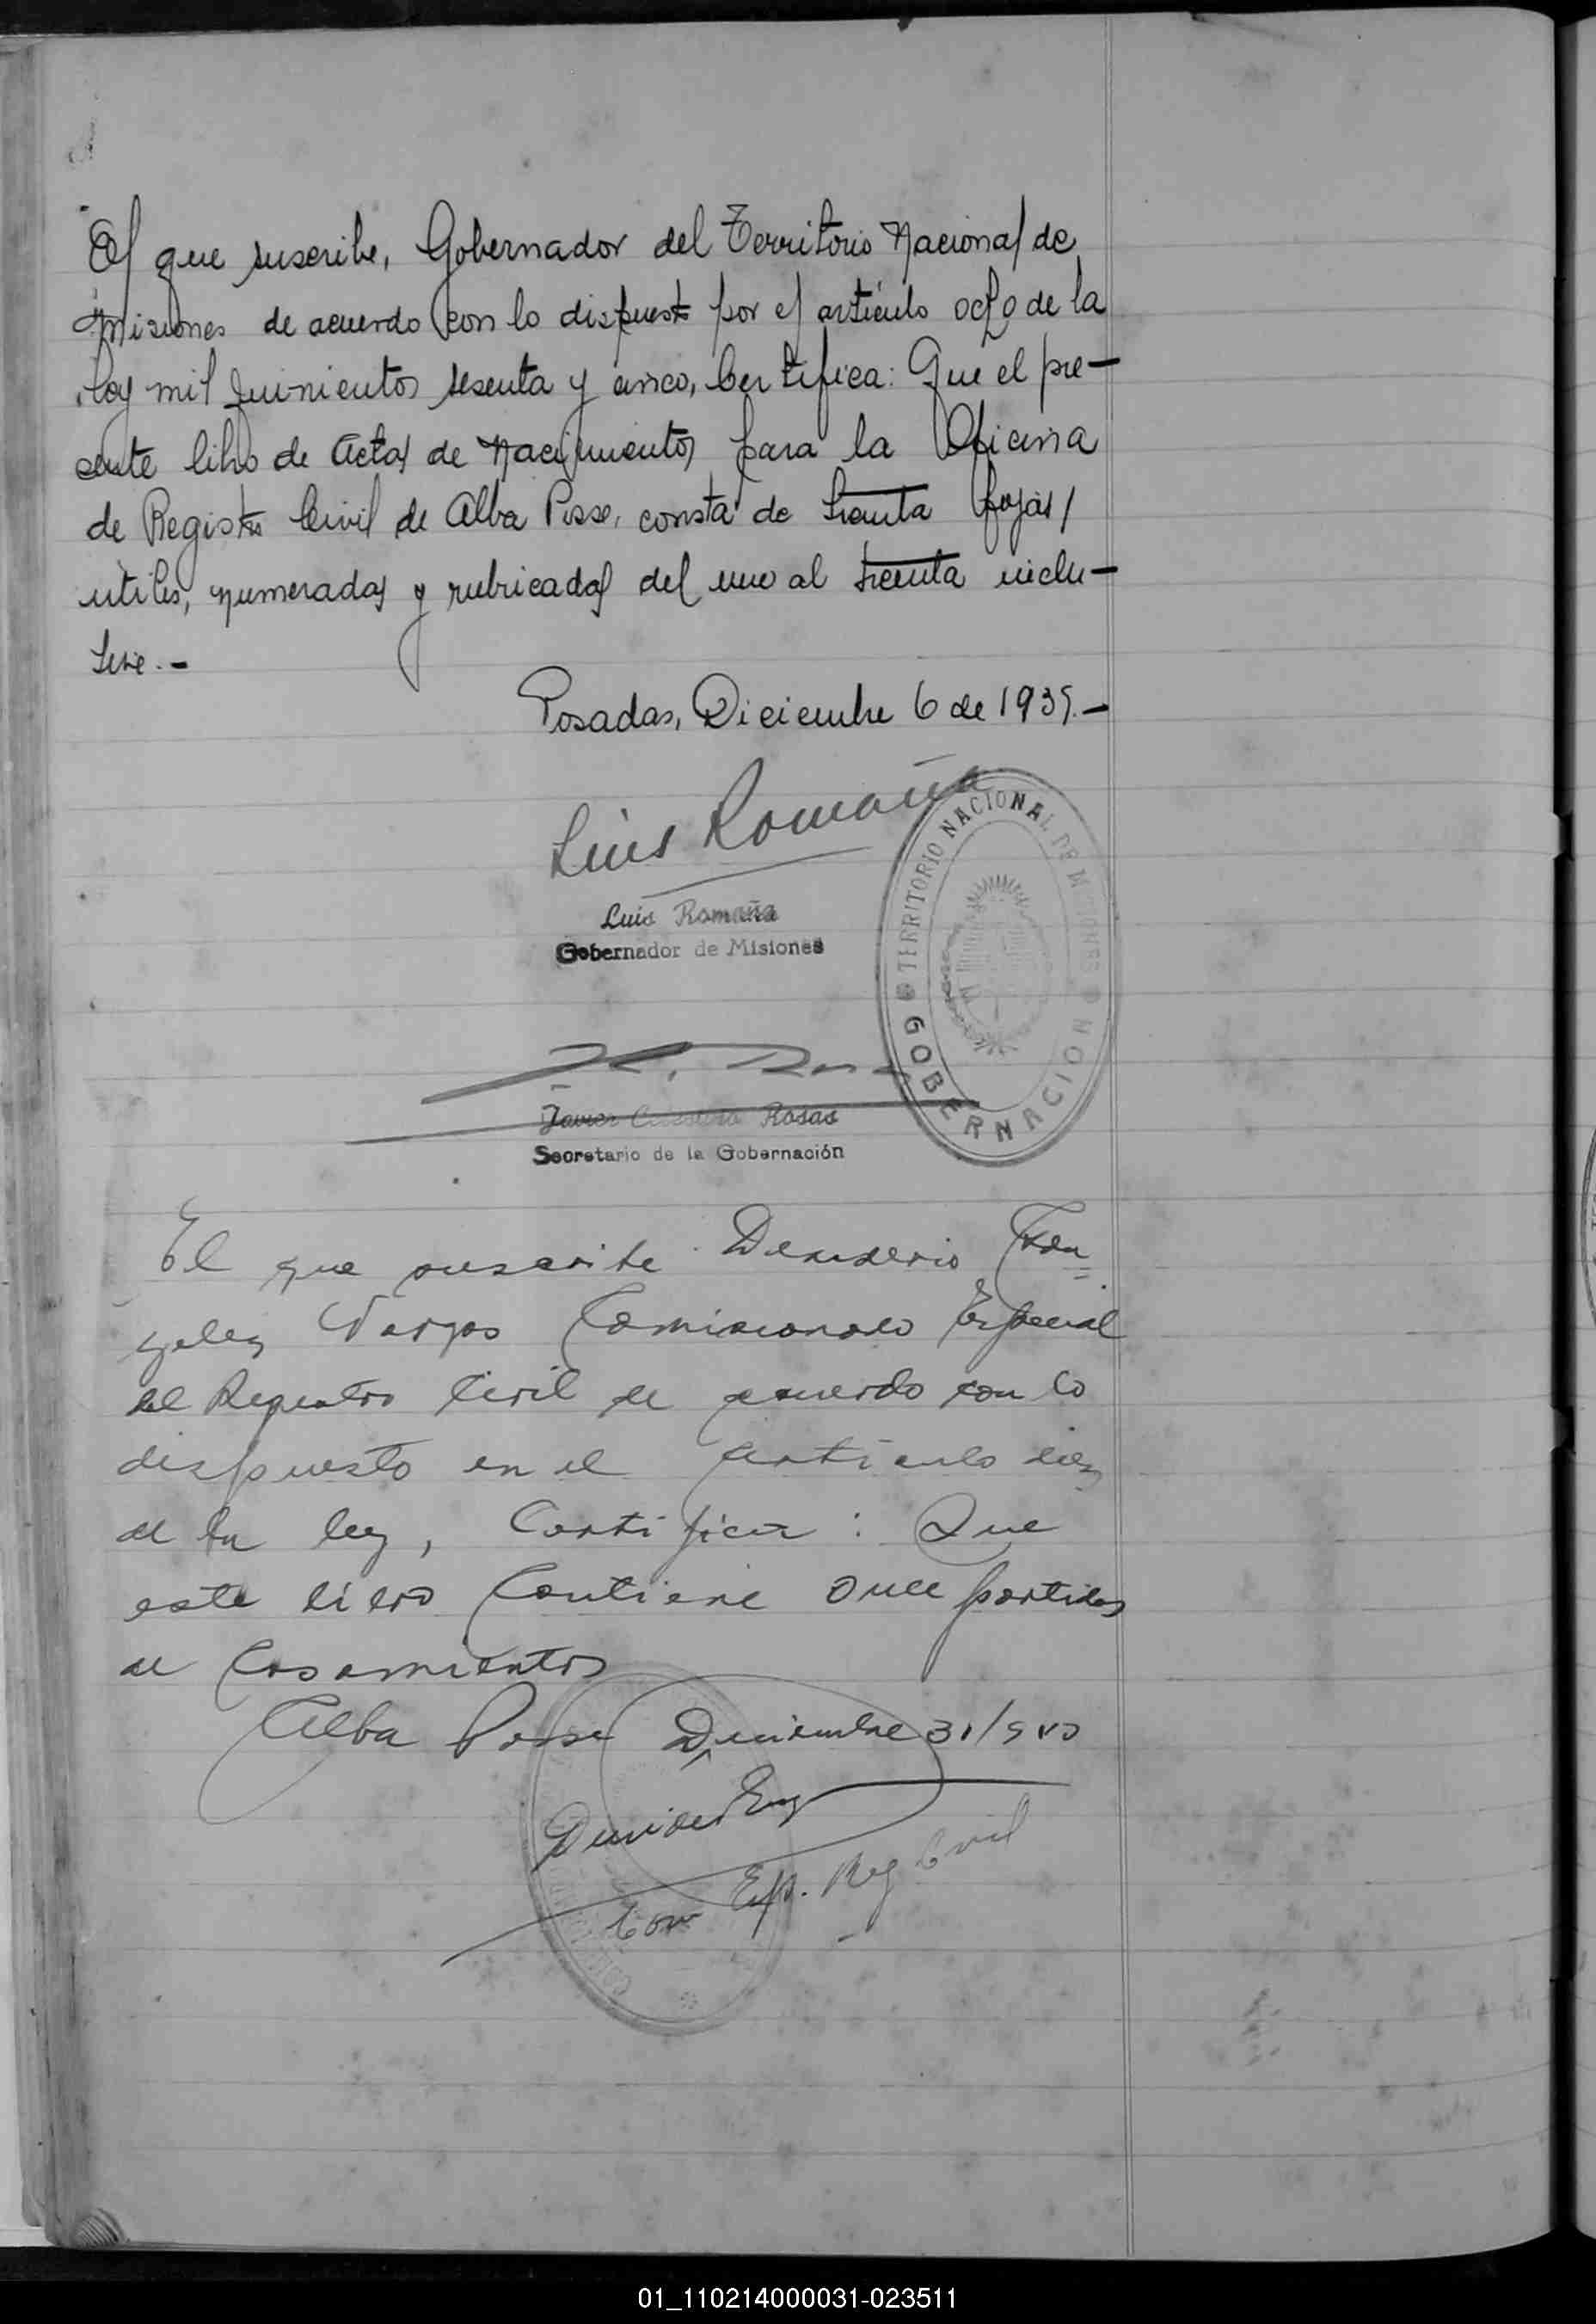 El que suscribe, Gobernador del Territorio Nacional de
Misiones de acuerdo con lo dispuesto por el artículo ocho de la
Ley mil quinientos sesenta y cinco, Certifica: Que el pre-
sente libro de Actas de Nacimientos para la Oficina
de Registro Civil de Alba Posse, consta de treinta fojas/
utiles, numeradas y rubricadas del uno al treinta inclu-
sive.-
Posadas, Diciembre 6 de 1939.-
Luis Romaña
Luis Romaña
Gobernador de Misiones
TERRITORIO NACIONAL DE MISIONES
GOBERNACION
Javier Rosas
Secretario de la Gobernación
El que suscribe Desiderio Gon=
zalez Vargas Comisionado Especial
del Registro Civil de acuerdo con lo
dispuesto en el artículo diez
de la ley, Certifica: Que
este libro contiene once partidas
de Casamientos
Alba Posse Diciembre 31/940
Com Esp. Reg Civil
01_110214000031-023511